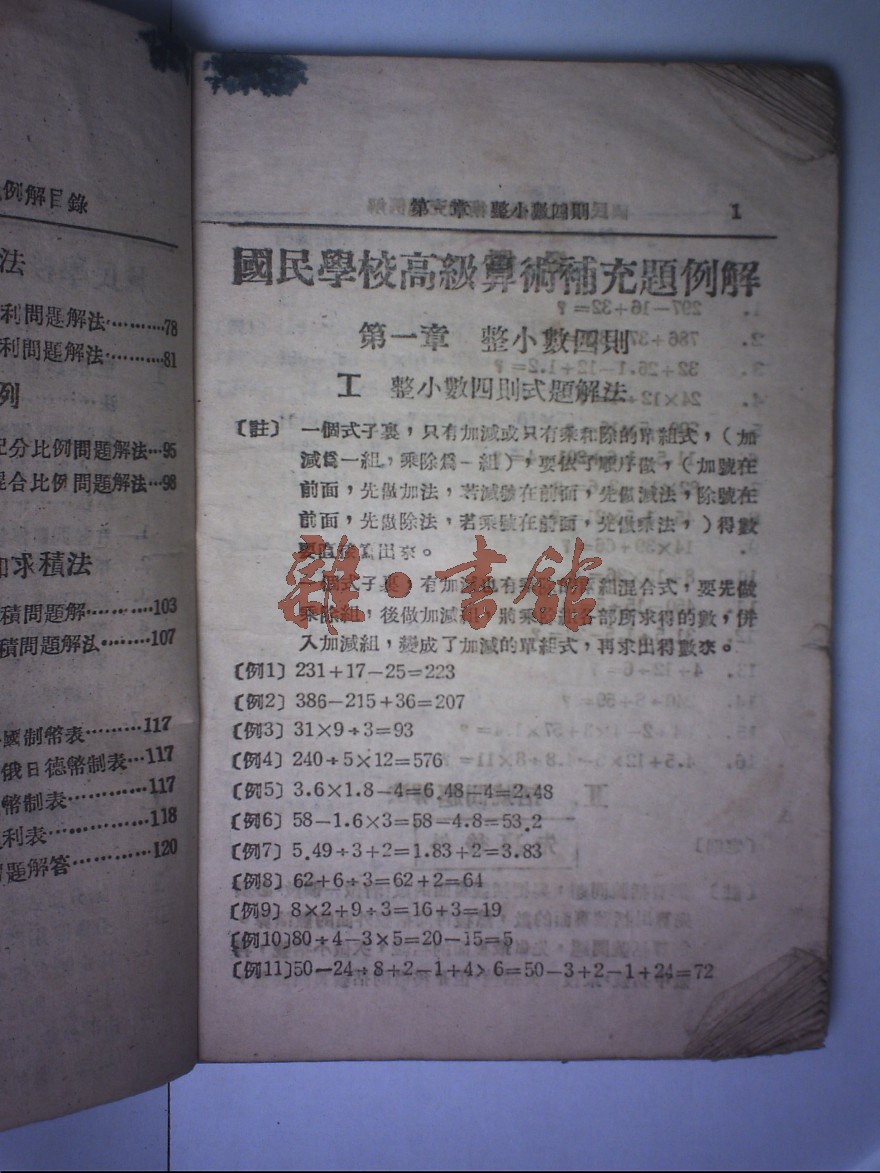 例解目錄
法
利問題解法⋯⋯⋯78
利問題解法⋯⋯⋯81
列
配分比例問題解法⋯95
混合比例問題解法⋯98
求積法
積問題解⋯⋯⋯103
積問題解法⋯⋯⋯107
國制幣表⋯⋯⋯117
俄日德幣制表⋯117
幣制表⋯⋯⋯117
利表⋯⋯⋯118
題解答⋯⋯⋯120
第一章 整小數四則 1
國民學校高級算術補充題例解
第一章 整小數四則
I 整小數四則式題解法
〔註〕 一個式子裏，只有加減或只有乘和除的單組式，（加
減爲一組，乘除爲一組），要依了順序做，（加號在
前面，先做加法，若減號在前面，先做減法，除號在
前面，先做除法，若乘號在前面，先做乘法，）得數
要直接寫出來。
一個式子裏，有加減也有乘除的雜組混合式，要先做
乘除組，後做加減組，將乘除組各部所求得的數，併
入加減組，變成了加減的單組式，再求出得數來。
〔例1〕231+17-25=223
〔例2〕386-215+36=207
〔例3〕31×9÷3=93
〔例4〕240÷5×12=576
〔例5〕3.6×1.8-4=6.48-4=2.48
〔例6〕58-1.6×3=58-4.8=53.2
〔例7〕5.49÷3+2=1.83+2=3.83
〔例8〕62+6÷3=62+2=64
〔例9〕8×2+9÷3=16+3=19
〔例10〕80÷4-3×5=20-15=5
〔例11〕50-24÷8+2-1+4×6=50-3+2-1+24=72
雜·書館